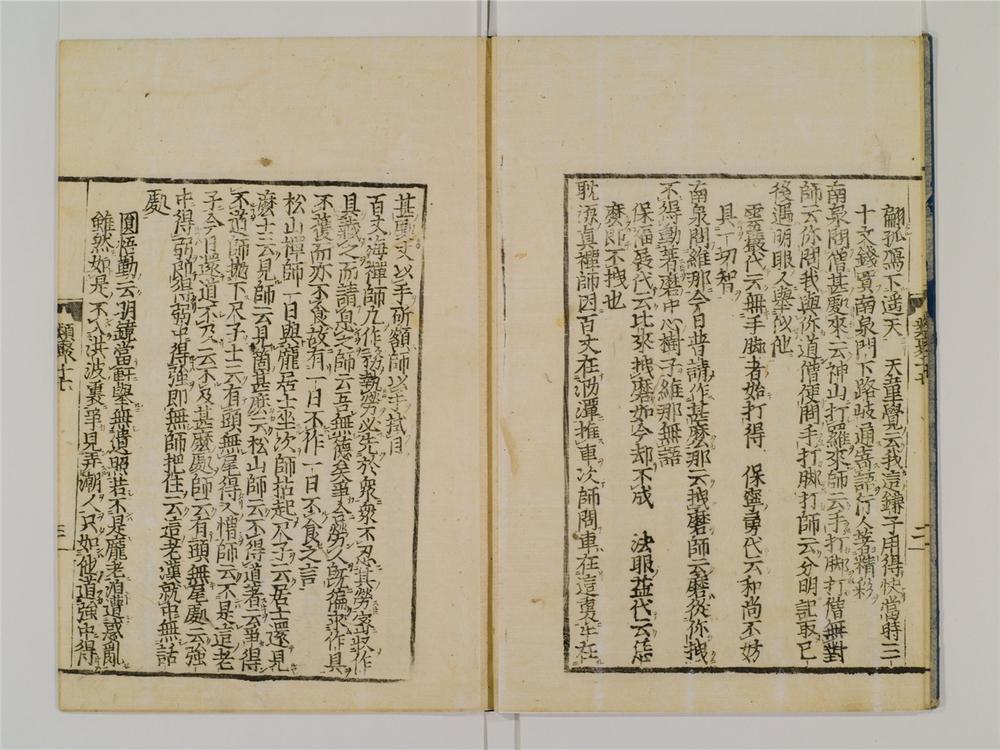 翩孤鴈下遥天　天童覺云我這鎌子用得快當時三
十文錢買南泉門下路岐通寄語行人著精彩
南泉問僧甚處來云神山打羅來師云手打脚打僧無對
師云你問我與你道僧便問手打脚打師云分明記取已
後遇明眼人擧似他
雲巖代云無手脚者始打得　保寧勇代云和尚不妨
具一切智
南泉問維那今日普請作甚麽那云拽磨師云磨從你拽
不得動著磨中心樹子維那無語
保福展代云比來拽磨如今却不成　法眼益代云恁
麽即不拽也
耽源眞禪師因百丈在泐潭推車次師問車在這裏牛在
類聚十七
二
甚處丈以手斫額師以手拭目
百丈海禪師凡作務執勞必先於衆衆不忍其勞密收作
具籖之而請息之師云吾無德矣爭合勞人既徧求作具
不獲而亦不食故有一日不作一日不食之言
松山禪師一日與龐居士坐次師拈起尺子云居士還見
麽士云見師云見箇甚麽云松山師云不得道著云爭得
不道師抛下尺子士云有頭無尾得人憎師云不是這老
子今日還道不及云不及甚麽處師云有頭無尾處云強
中得弱即有弱中得強即無師把住云這老漢就中無話
處
圓悟勤云明鏡當軒擧無遺照若不是龐老洎遭惑亂
雖然如是不入洪波裏爭見弄潮人只如他道強中得
類聚十七
三